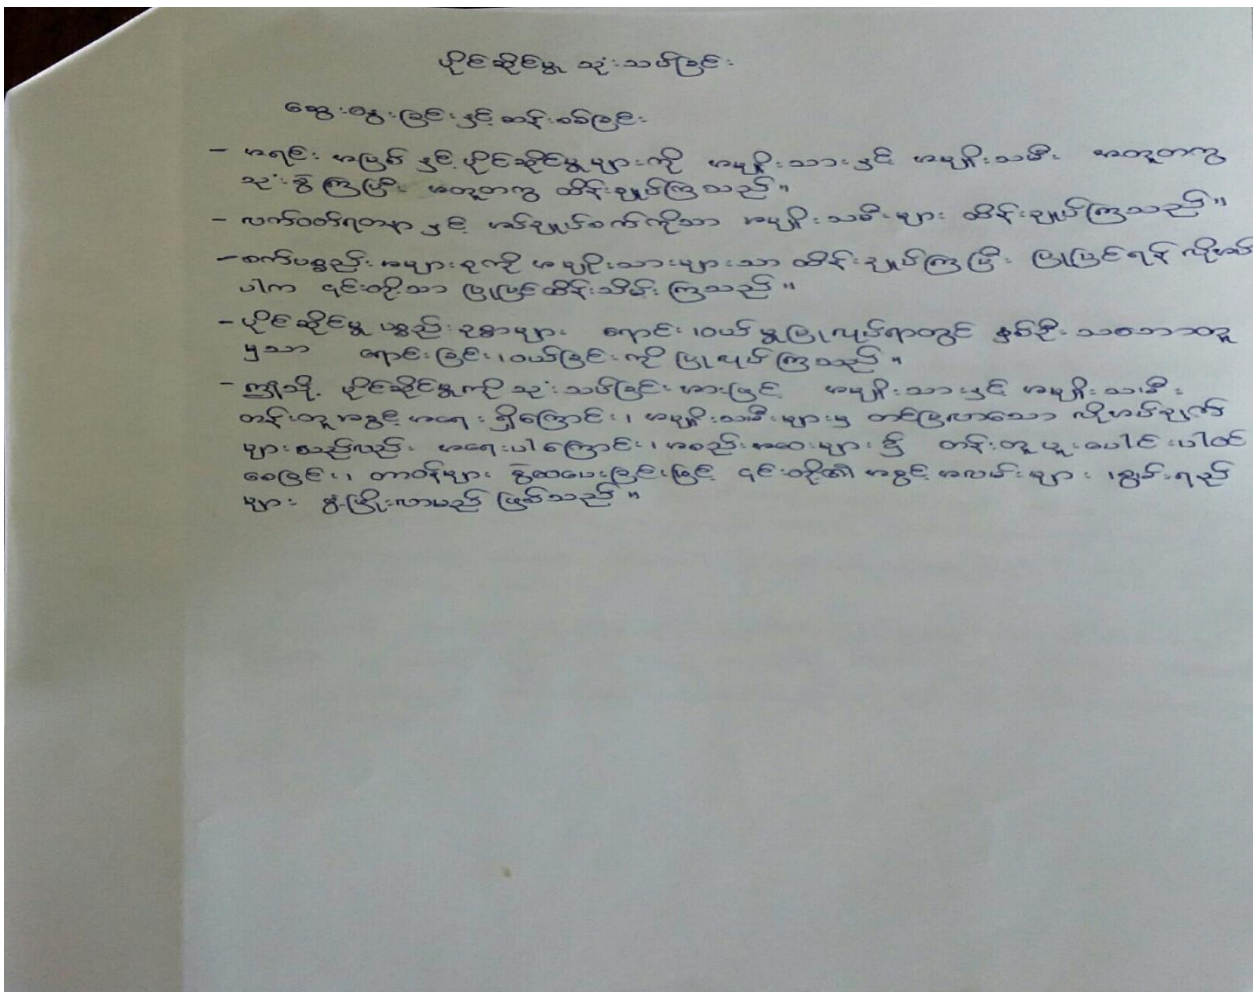 ပိုင်ဆိုင်မှု သုံးသပ်ခြင်း
ဆွေးနွေးခြင်းနှင့် ဆန်းစစ်ခြင်း
- အရင်းအမြစ် နှင့် ပိုင်ဆိုင်မှုများကို အမျိုးသားနှင့် အမျိုးသမီး အတူတကွ
သုံးစွဲကြပြီး အတူတကွ ထိန်းချုပ်ကြသည်။
- လက်ဝတ်ရတနာ နှင့် အပ်ချုပ်စက်ကိုသာ အမျိုးသမီးများ ထိန်းချုပ်ကြသည်။
- စက်ပစ္စည်းအများစုကို အမျိုးသားများသာ ထိန်းချုပ်ကြပြီး ပြုပြင်ရန် လိုအပ်
ပါက ၎င်းတို့သာ ပြုပြင်ထိန်းသိမ်းကြသည်။
- ပိုင်ဆိုင်မှု ပစ္စည်းဥစ္စာများ ရောင်း၊ဝယ်မှုပြုလုပ်ရာတွင် နှစ်ဦးသဘောတူ
မှသာ ရောင်းခြင်း၊ဝယ်ခြင်းကို ပြုလုပ်ကြသည်။
- ဤသို့ ပိုင်ဆိုင်မှုကို သုံးသပ်ခြင်းအားဖြင့် အမျိုးသားနှင့် အမျိုးသမီး
တန်းတူအခွင့်အရေးရှိကြောင်း၊ အမျိုးသမီးများမှ တင်ပြလာသော လိုအပ်ချက်
များသည်လည်း အရေးပါကြောင်း၊ အစည်းအဝေးများ၌ တန်းတူပူးပေါင်းပါဝင်
စေခြင်း၊ တာဝန်များ ခွဲဝေပေးခြင်းဖြင့် ၎င်းတို့၏ အခွင့်အလမ်းများ ၊စွမ်းရည်
များ ဖွံ့ဖြိုးလာမည် ဖြစ်သည်။